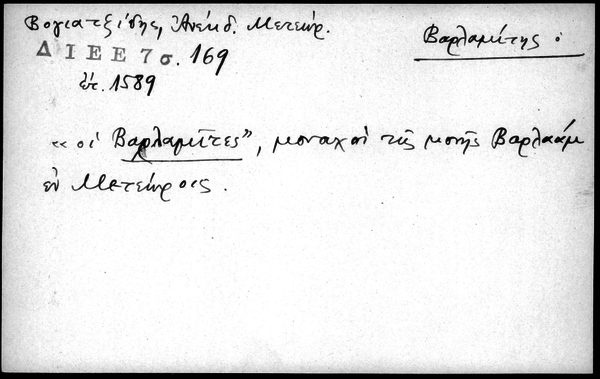 Βογιατζίδης, Ἀνέκδ. Μετεώρ.
Βαρλαμίτης ὁ
ΔΙΕΕ 7 σ. 169
ἔτ. 1589
«οἱ Βαρλαμῖτες”, μοναχοὶ τῆς μονῆς Βαρλαάμ
ἐν Μετεώροις.